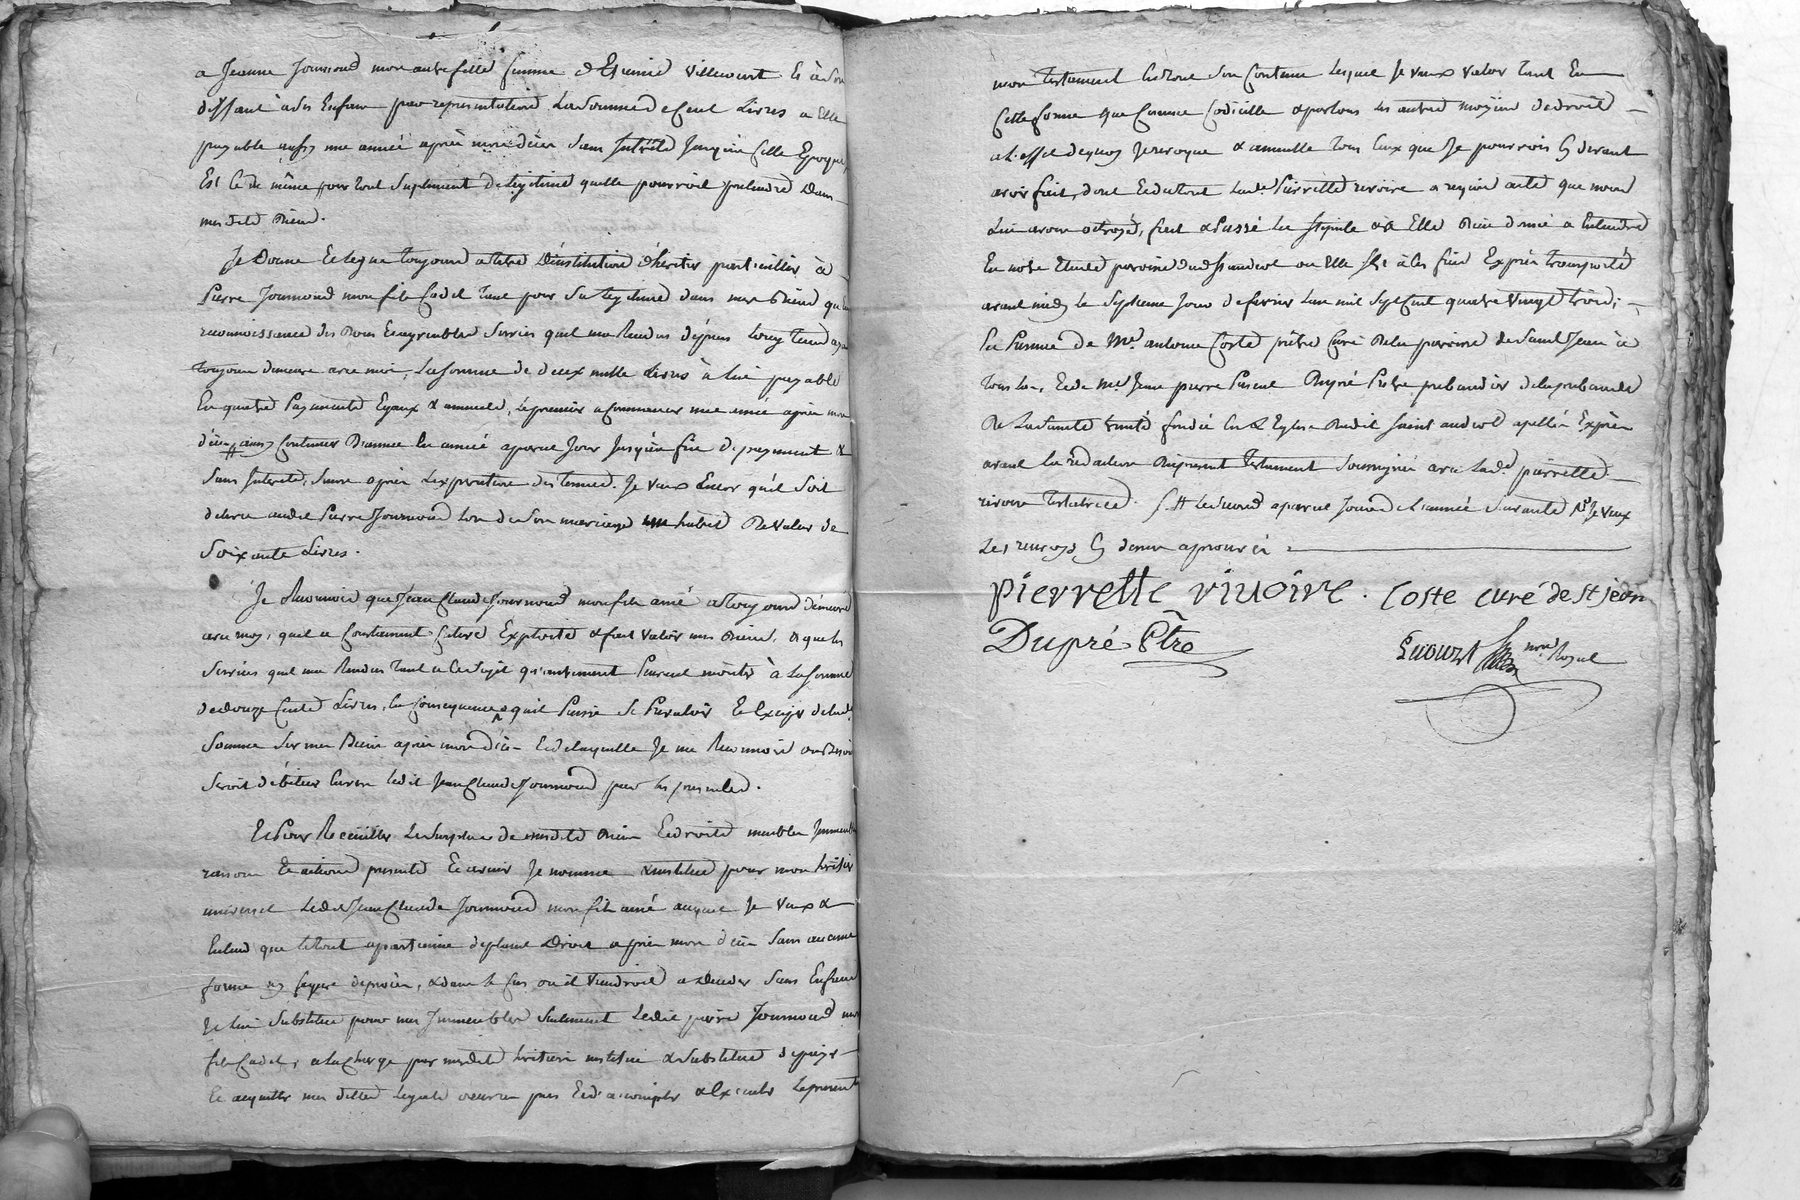 a Jeanne Journoud mon autre fille femme d'Etienne Villecourt Et à son
deffaut à ses Enfans par representation La somme de Cent Livres a Elle
payable aussy une année après mon décès sans Intérêts Jusqu'à cette Epoque,
Et ce de même pour tout suplement de legitime qu'elle pourroit pretendre dans
mesdits Biens.
Je Donne et legue toujours a titre D'institution d'héritier particulier à
Pierre Journoud mon fils Cadet tant pour sa legitime dans mes Biens qu'en
reconnoissance des Bons Et agreables services qu'il ma Rendus depuis long tems ayant
toujours demeuré avec moi, La somme de deux mille Livres à lui payable
En quatre Payements Egaux & annuels, le premier a Commencer une année après mon
décès, ainsy Continuer D'année En année a pareil Jour Jusqu'à fin de payement &
sans Interets, sinon après L'expiration des termes. Je veux Encor qu'il soit
delivré audit Pierre Journoud lors de son mariage un habit De valeur de
Soixante Livres.
Je Reconnois que Jean Claude Journoud mon fils ainé a toujours demeuré
avec moy, qu'il a Constament Cultivé Exploité & fait valoir mes Biens, & que les
services qu'il ma Rendus tant a ce sujet qu'autrement Peuvent monter à La somme
de douze Cents Livres, En Consequence qu'il Puisse se Prevaloir Et Exiger de lad.
somme sur mes Biens après mon décès Et de laquelle Je me Reconnois au Besoin
debiteur Envers ledit Jean Claude Journoud par les presentes.
Et Pour Receuillir Le Surplus de mesdits Biens Et droits meubles Immeubles
raisons Et actions presents Et avenir Je nomme & institue pour mon héritier
universel Ledit Jean Claude Journoud mon fils ainé auquel Je veux &
Entend que le tout apartienne de plaine Droit après mon décès sans aucune
forme ny figure de procès, & dans le Cas ou il viendroit a Deceder sans Enfans
Je lui substitue pour mes Immeubles seulement Ledit pierre Journoud mon
fils Cadet, a la Charge par mesdits héritiers institué & substitué de payer
Et acquitter mes dittes Legats oeuvres pies Et d'accomplir & Executer Le present
mon testament En tout son Contenu Lequel Je veux valoir tant En
Cette forme que Comme Codicille & par tous les autres moyens de droit
a L'effet de quoy Je revoque & annulle tous Ceux que Je pourrois Cy devant
avoir fait, dont Et du tout Lad. Pierrette rivoire a requis acte que nous
Lui avons octroyé, fait & Passé Lu stipulé & a Elle Bien donné a Entendre
En notre Etude paroisse dud. St andeol ou Elle s'est à Ces fins Exprès transporté
avant midy le septieme Jour de fevrier L'an mil sept Cent quatre vingt trois,
En Presence de Mre. antoine Coste prêtre Curé De la paroisse de Saint Jean de
touslas, Et de Mre Jean pierre Pascal Dupré Prêtre prebandier de la prebande
De La Sainte trinité fondée En L'Eglise Dudit Saint andeol apellés Exprès
avant la rédaction Du present testament soussignés avec Lad. pierrette
rivoire testatrice. Le second a pareil Jour de L'année suivante Je veux
Les renvoys Cy dessus aprouvés
pierrette rivoire. Coste curé de st jean
Dupré Ptre
Royal